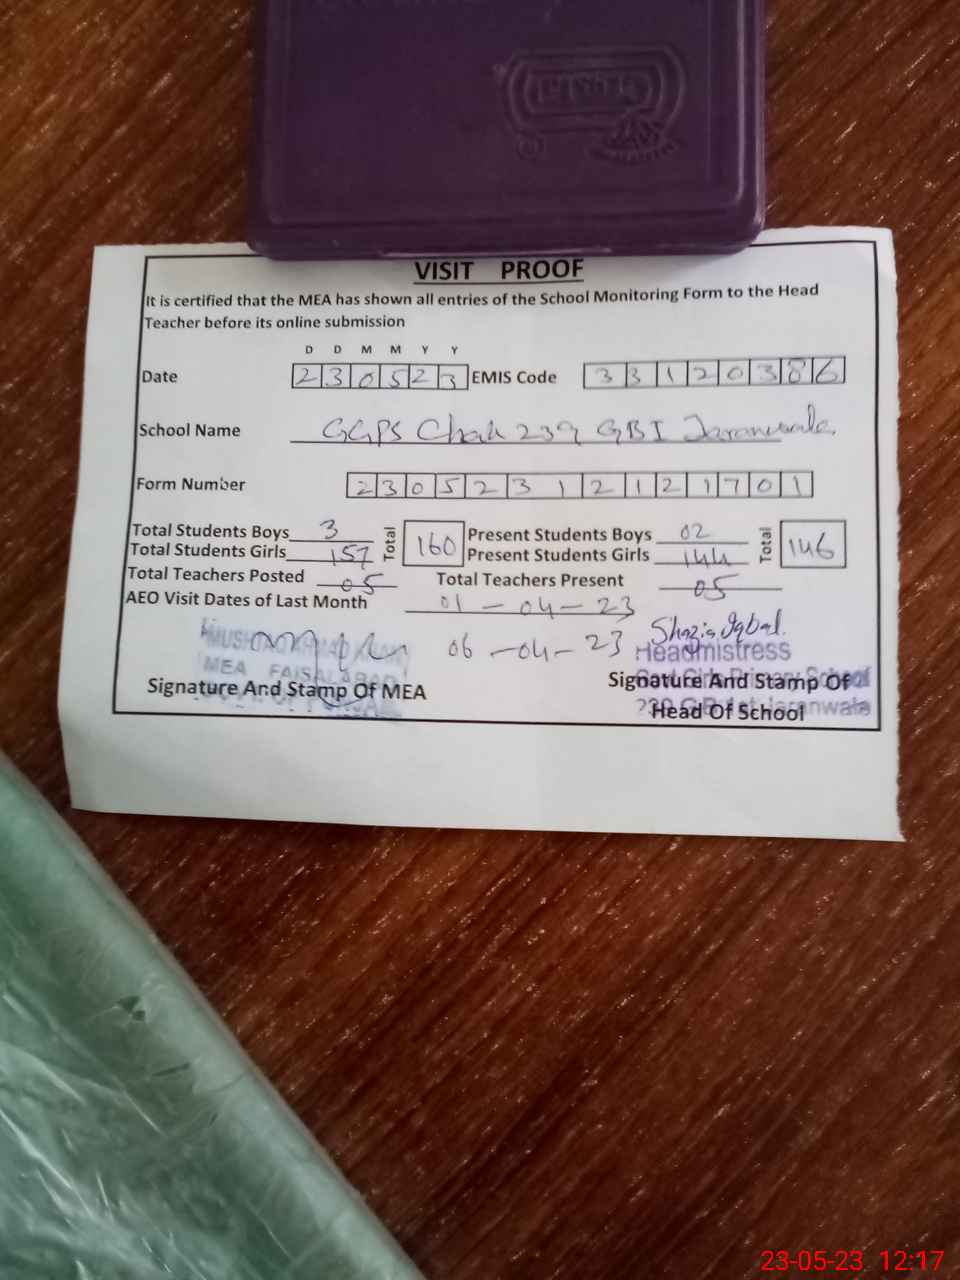 VISIT PROOF
It is certified that the MEA has shown all entries of the School Monitoring Form to the Head
Teacher before its online submission
D D M M Y Y
Date 2 3 0 5 2 3 EMIS Code 3 3 1 2 0 3 8 6
School Name GGPS Chak 239 GBI Jaranwala
Form Number 2 3 0 5 2 3 1 2 1 2 1 7 0 1
Total Students Boys 3 Total 160 Present Students Boys 02 Total 146
Total Students Girls 157 Present Students Girls 144
Total Teachers Posted 05 Total Teachers Present 05
AEO Visit Dates of Last Month 01-04-23
06-04-23 Shazia Iqbal.
Headmistress
MEA FAISALABAD
Govt Girls Primary School
Signature And Stamp Of MEA Signature And Stamp Of
Head Of School
Jaranwala
23-05-23 12:17